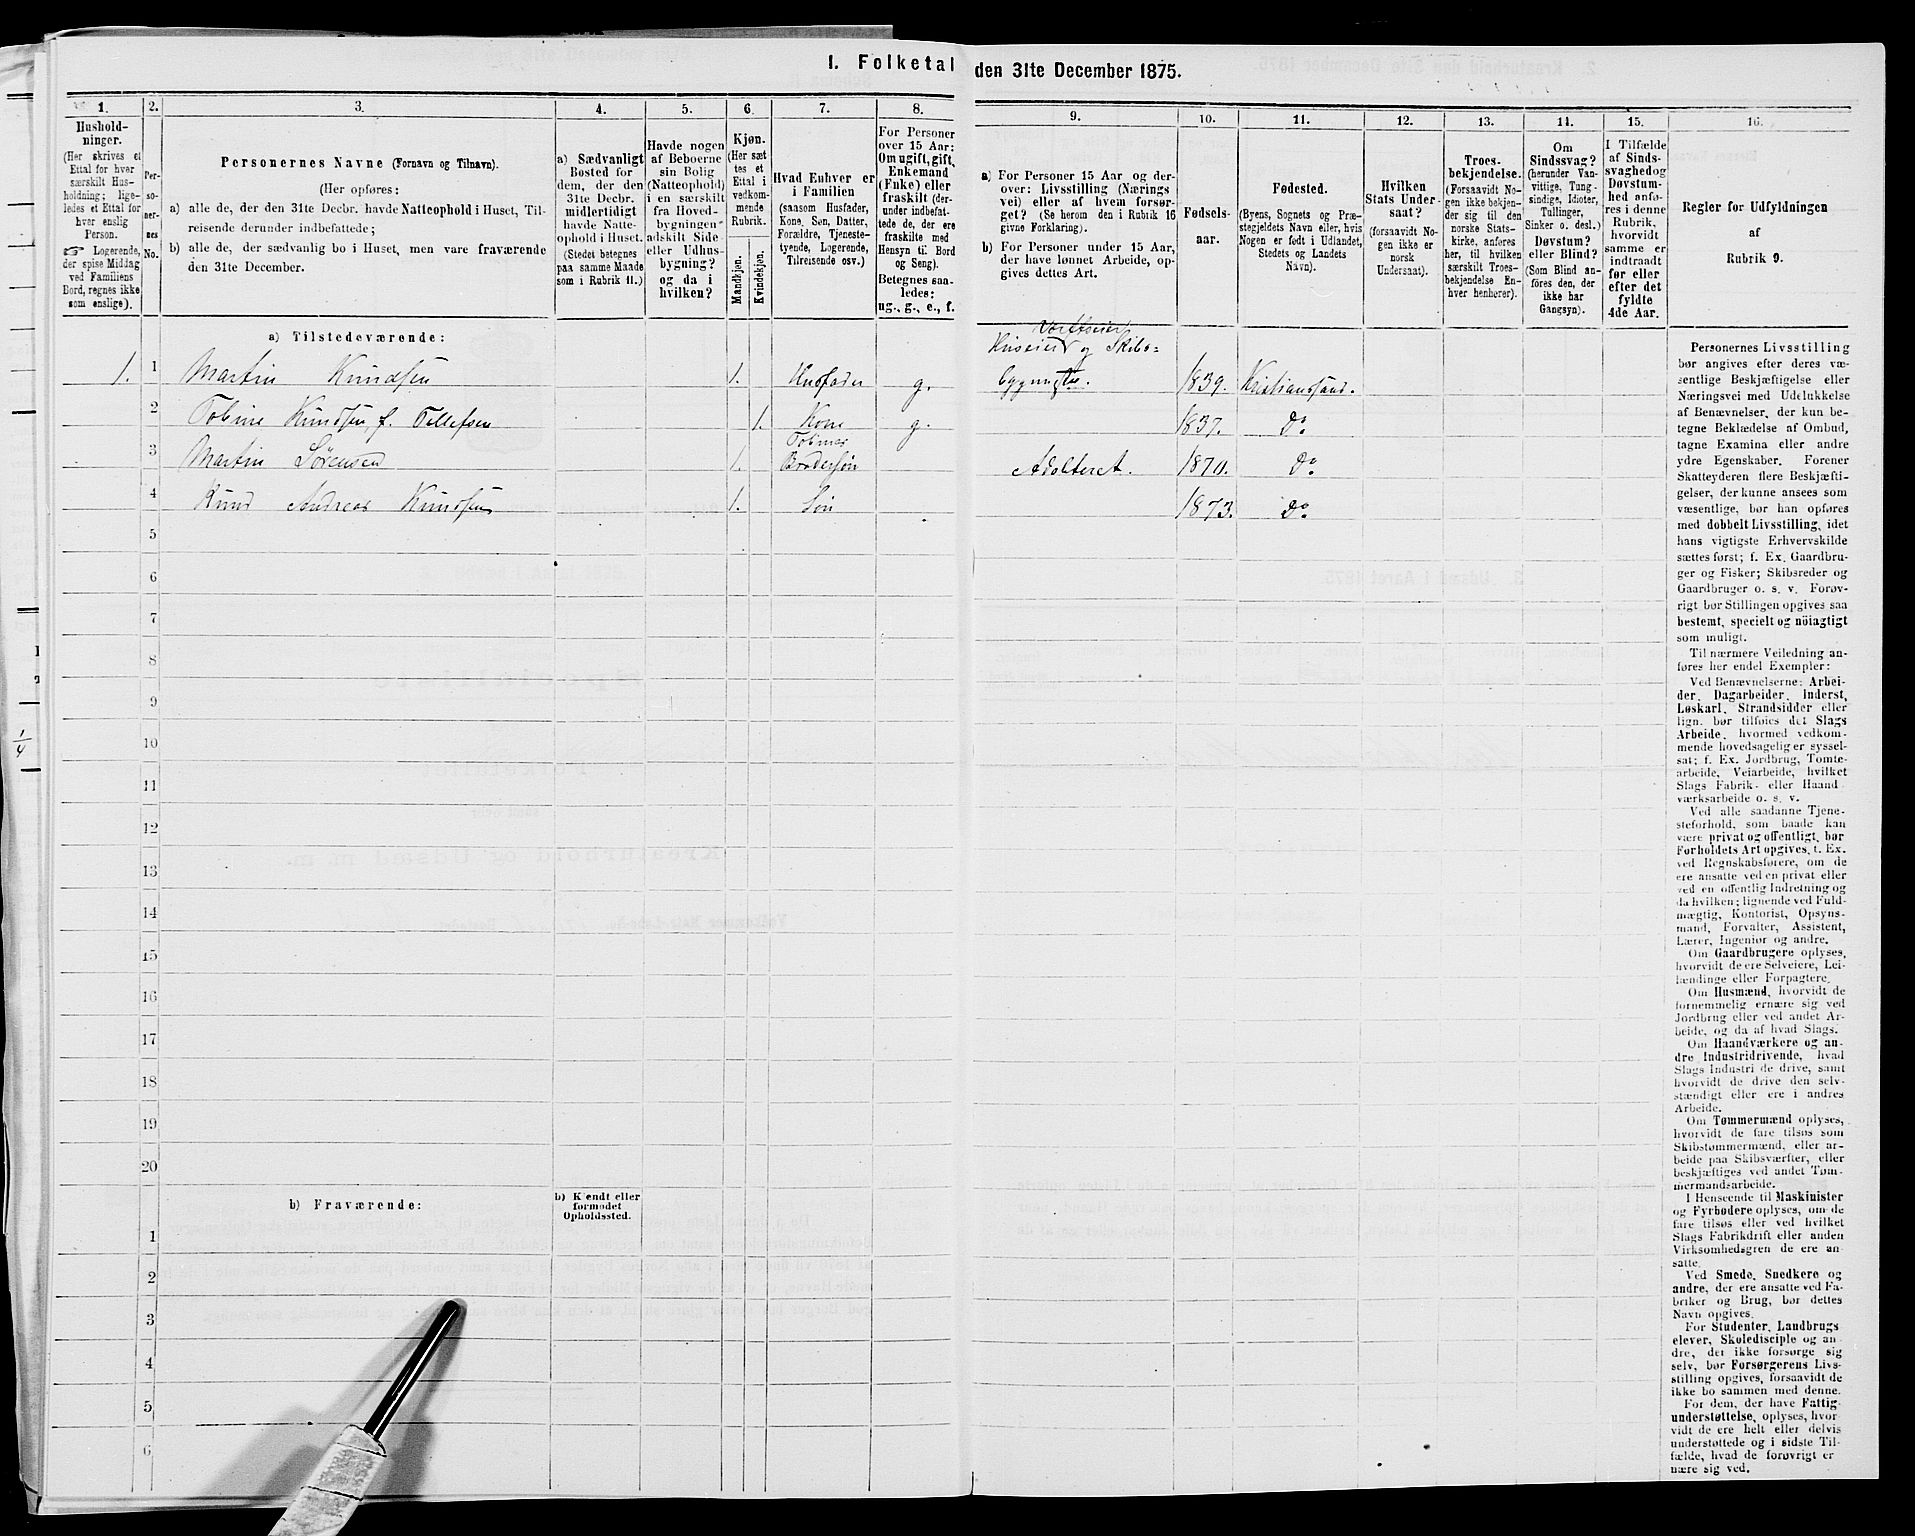 I. Folketal den 31te December 1875.
1.
Hushold-
ninger.
(Her skrives et
Ettal for hver
særskilt Hus-
holdning; lige-
ledes et Ettal for
hver enslig
Person.
☞ Logerende,
der spise Middag
ved Familiens
Bord, regnes ikke
som enslige).
2.
Per-
so-
ner-
nes
No.
3.
Personernes Navne (Fornavn og Tilnavn).
(Her opføres:
a) alle de, der den 31te Decbr. havde Natteophold i Huset, Til-
reisende derunder indbefattede;
b) alle de, der sædvanlig bo i Huset, men vare fraværende
den 31te December.
4.
a) Sædvanligt
Bosted for
dem, der den
31te Decbr.
midlertidigt
havde Natte-
ophold i Huset.
(Stedet betegnes
paa samme Maade
som i Rubrik 11.)
5.
Havde nogen
af Beboerne
sin Bolig
(Natteophold)
i en særskilt
fra Hoved-
bygningen
adskilt Side-
eller Udhus-
bygning?
og da i
hvilken?
6.
Kjøn.
(Her sæt-
tes et
Ettal i
vedkom-
mende
Rubrik.
Mandkjøn.
Kvindekjøn.
7.
Hvad Enhver er
i Familien
(saasom Husfader,
Kone, Søn, Datter,
Forældre, Tjeneste-
tyende, Logerende,
Tilreisende osv.)
8.
For Personer
over 15 Aar:
Om ugift, gift,
Enkemand
(Enke) eller
fraskilt (der-
under indbefat-
tede de, der ere
fraskilte med
Hensyn til Bord
og Seng).
Betegnes saa-
ledes:
ug., g., e., f.
9.
a) For Personer 15 Aar og der-
over: Livsstilling (Nærings
vei) eller af hvem forsør-
get? (Se herom den i Rubrik 16
givne Forklaring).
b) For Personer under 15 Aar,
der have lønnet Arbeide, op-
gives dettes Art.
10.
Fødsels-
aar.
11.
Fødested.
(Byens, Sognets og Præ-
stegjeldets Navn eller, hvis
Nogen er født i Udlandet,
Stedets og Landets
Navn).
12.
Hvilken
Stats Under-
saat?
(forsaavidt No-
gen ikke er
norsk
Undersaat).
13.
Troes-
bekjendelse.
(Forsaavidt No-
gen ikke bekjen-
der sig til den
norske Stats-
kirke, anføres
her, til hvilken
særskilt Troes-
bekjendelse En-
hver henhører).
14.
Om
Sindssvag?
(herunder Van-
vittige, Tung-
sindige, Idioter,
Tullinger,
Sinker o. desl.)
Døvstum?
eller Blind?
(Som Blind an-
føres den, der
ikke har
Gangsyn).
15.
I Tilfælde
af Sinds-
svaghed og
Døvstum-
hed anfø-
res i denne
Rubrik,
hvorvidt
samme er
indtraadt
før eller
efter det
fyldte
4de Aar.
16.
Regler for Udfyldningen
af
Rubrik 9.
a) Tilstedeværende:
Huseier og Skibs-
1. 1 Martin Knudsen 1. Husfader g. bygmester. 1839. Kristianssand.
2 Tobine Knudsen f. Tellefsen 1. Kone g. 1837. Do
Tobines
3 Martin Sørensen 1. Brodersøn Adopteret. 1870. Do
4 Knud Andreas Knudsen 1. Søn 1873. Do
5
6
7
8
9
10
11
12
13
14
15
16
17
18
19
20
b) Fraværende:
b) Kjendt eller
formodet
Opholdssted.
1
2
3
4
5
6
Personernes Livsstilling
bør angives efter deres væ-
sentlige Beskjæftigelse eller
Næringsvei med Udelukkelse
af Benævnelser, der kun be-
tegne Beklædelse af Ombud,
tagne Examina eller andre
ydre Egenskaber. Forener
Skatteyderen flere Beskjæfti-
gelser, der kunne ansees som
væsentlige, bør han opføres
med dobbelt Livsstilling, idet
hans vigtigste Erhvervskilde
sættes først; f. Ex. Gaardbru-
ger og Fisker; Skibsreder og
Gaardbruger o. s. v. Forøv-
rigt bør Stillingen opgives saa
bestemt, specielt og nöiagtigt
som muligt.
Til nærmere Veiledning an-
føres her endel Exempler:
Ved Benævnelserne: Arbei-
der, Dagarbeider, Inderst,
Løskarl, Strandsidder eller
lign. bør tilføies det Slags
Arbeide, hvormed vedkom-
mende hovedsagelig er syssel-
sat; f. Ex. Jordbrug, Tomte-
arbeide, Veiarbeide, hvilket
Slags Fabrik- eller Haand
værksarbeide o. s. v.
Ved alle saadanne Tjene-
steforhold, som baade kan
være privat og offentligt, bør
Forholdets Art opgives, f. Ex.
ved Regnskabsførere, om de
ere ansatte ved en privat eller
ved en offentlig Indretning og
da hvilken; lignende ved Fuld-
mægtig, Kontorist, Opsyns-
mand, Forvalter, Assistent,
Lærer, Ingeniør og andre.
Om Gaardbrugere oplyses,
hvorvidt de ere Selveiere, Lei-
lændinge eller Forpagtere.
Om Husmænd, hvorvidt de
fornemmelig ernære sig ved
Jordbrug eller ved andet Ar-
beide, og da af hvad Slags.
Om Haandværkere og an-
dre Industridrivende, hvad
Slags Industri de drive, samt
hvorvidt de drive den selv-
stændigt eller ere i andres
Arbeide.
Om Tømmermænd oplyses,
hvorvidt de fare tilsøs som
Skibstømmermænd, eller ar-
beide paa Skibsværfter, eller
beskjæftiges ved andet Tøm-
mermandsarbeide.
I Henseende til Maskinister
og Fyrbødere oplyses, om de
fare tilsøs eller ved hvilket
Slags Fabrikdrift eller anden
Virksomhedsgren de ere an-
satte.
Ved Smede, Snedkere og
andre, der ere ansatte ved Fa-
briker og Brug, bør dettes
Navn opgives.
For Studenter, Landbrugs
elever, Skoledisciple og an-
dre, det ikke forsørge sig
selv, bør Forsørgerens Livs-
stilling opgives, forsaavidt de
ikke bo sammen med denne.
For dem, der have Fattig
understøttelse, oplyses, hvor-
vidt de ere helt eller delvis
understøttede og i sidste Til-
fælde, hvad de forøvrigt er
nære sig ved.